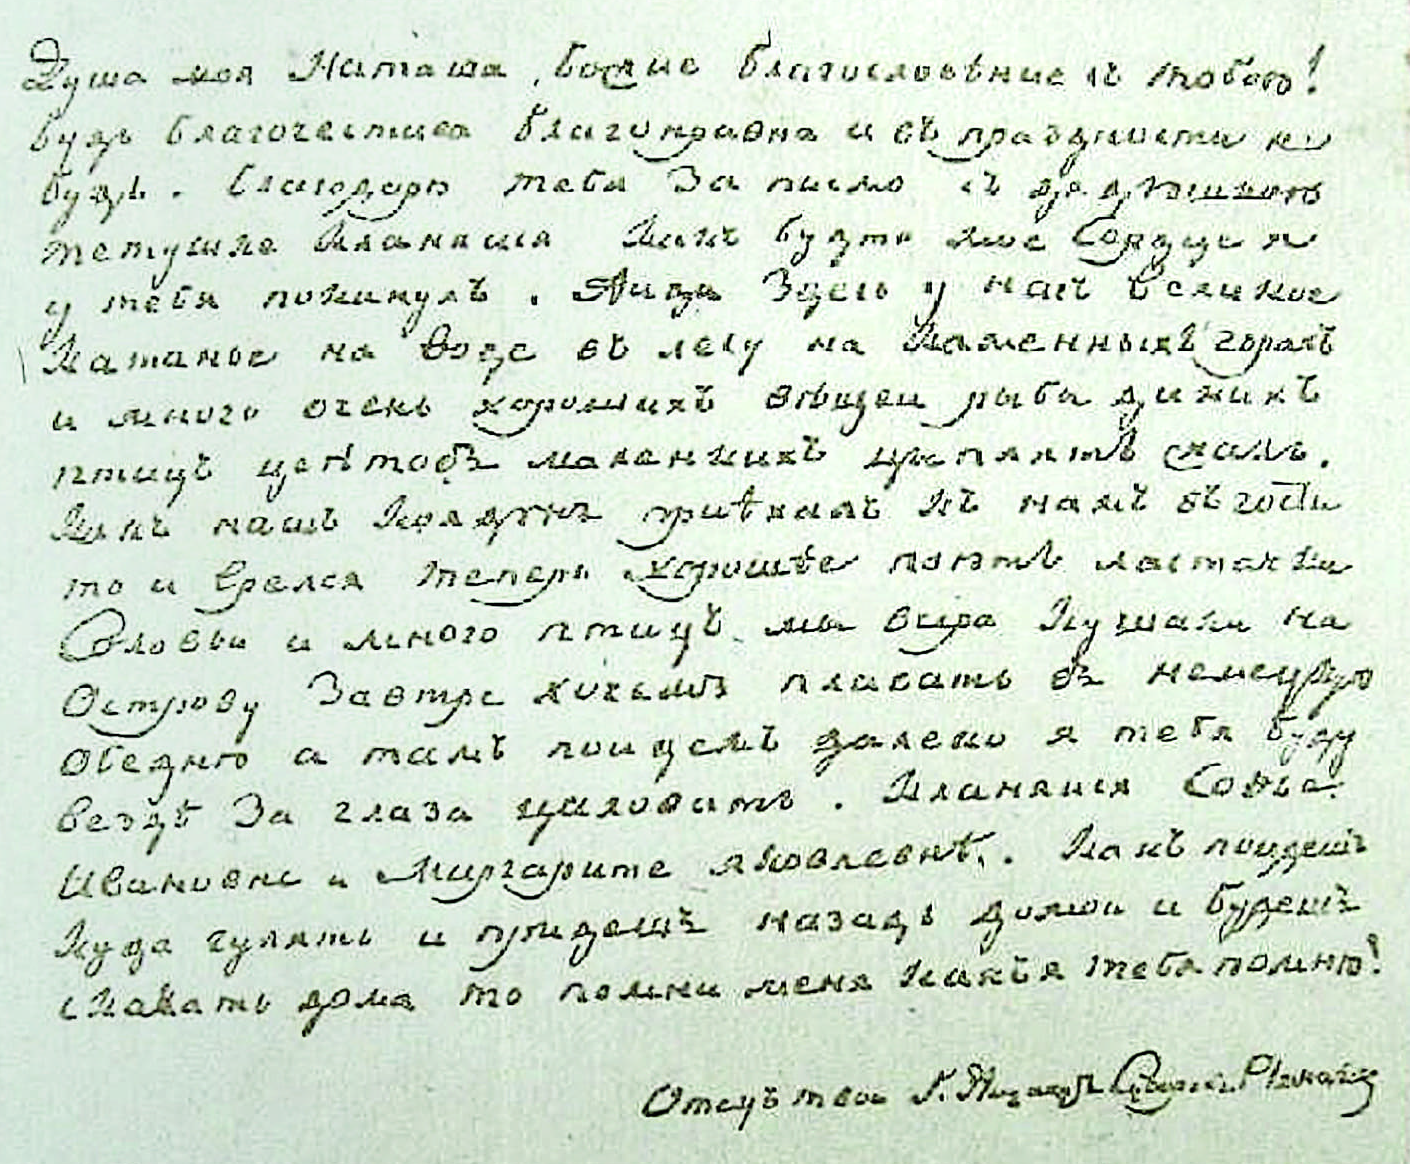 Душа моя Наташа, божие благословѣние съ тобою!
будь благочестива благонравна и въ праздности не
будь. благодарю тебя За письмо съ дядюшкою
тетушке кланяйся Какъ будто мое Сердце я
у тебя покинулъ. Айда Здесь у насъ великое
Катанье на воде въ лесу на Каменныхъ горахъ
и много очень хорошихъ вѣщей рыбы дикихъ
птицъ цвѣтовъ маленкихъ цыплятъ жаль.
Какъ нашъ приѣхалъ къ намъ въ гости
то и врелся теперь хорошее поютъ ласточки
Соловьи и много птицъ мы вчера Кушали на
Острову Завтре хочемъ плавать въ немецкую
Обедню а тамъ пойдемъ далеко я тебя буду
везде За глаза цаловать. Кланяйся Софье
Ивановне и Маргарите яковлевнѣ. Какъ пойдешъ
Куда гулять и придешъ назадъ домой и будешъ
скакать дома то помни меня какъ я тебя помню!
Отецъ твой Г. Александръ Суворинъ Рымникский